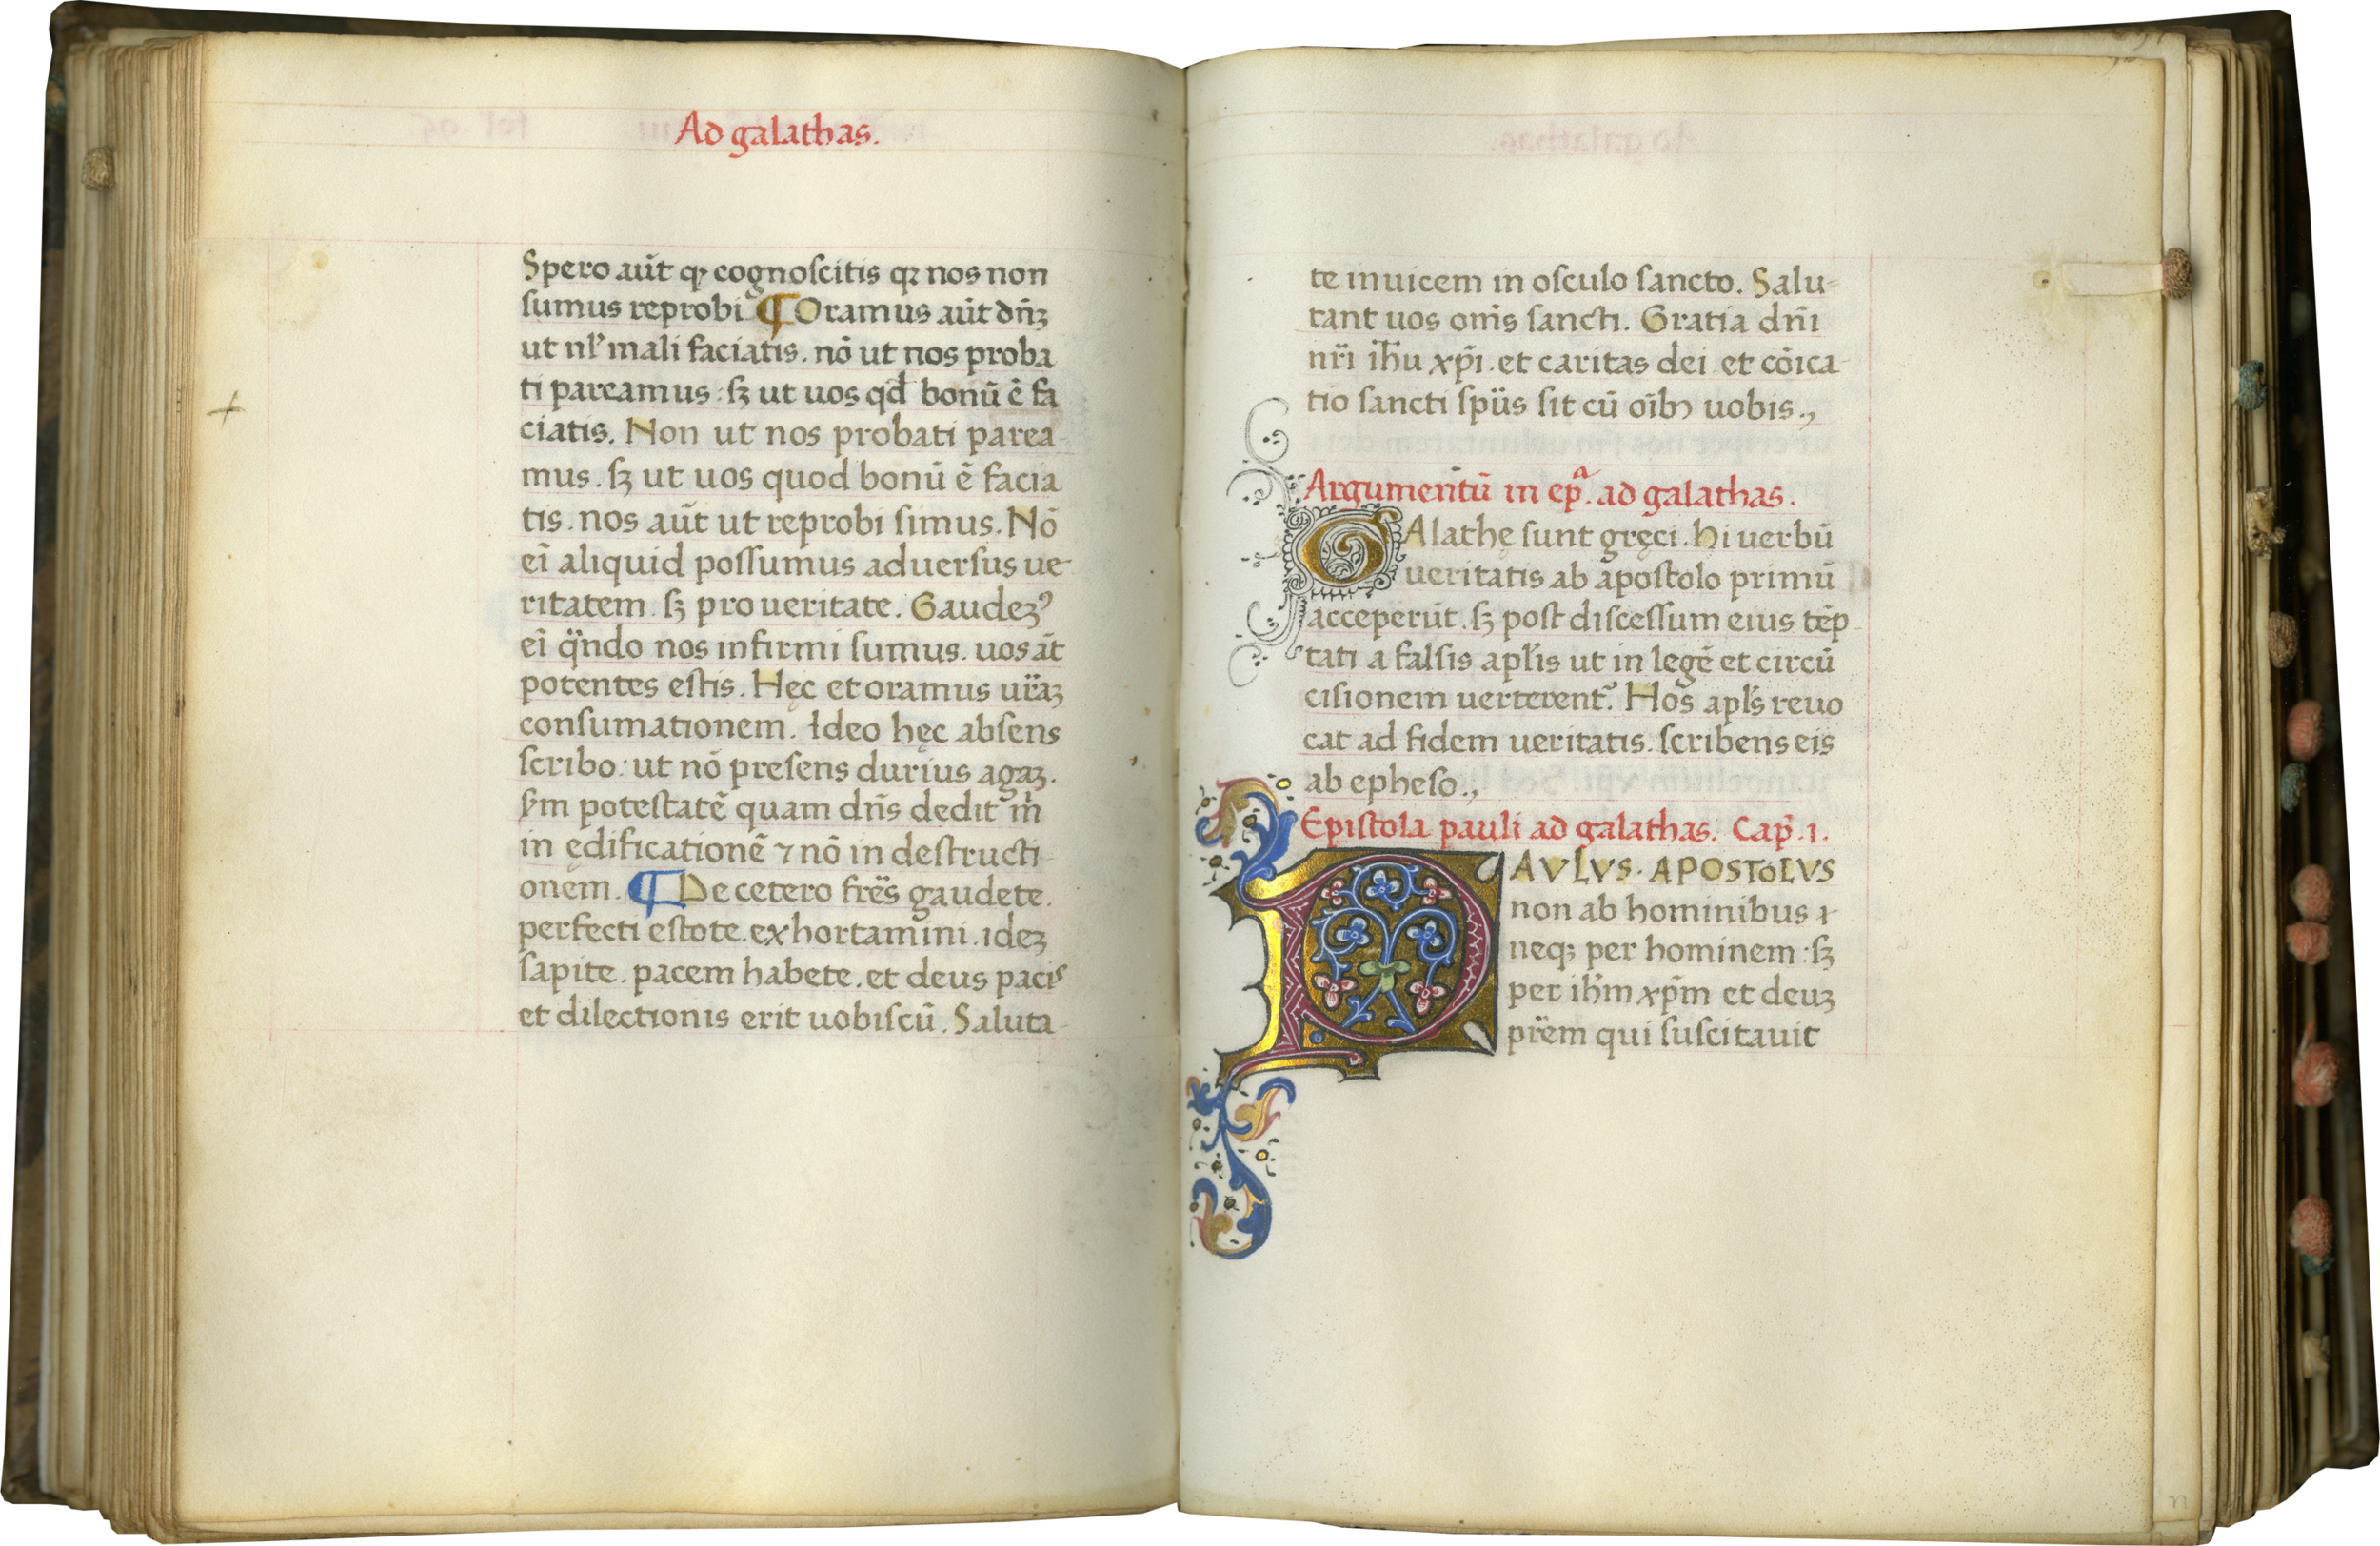 Ad galathas.
Spero aūt qꝫ cognoscitis qꝫ nos non
sumus reprobi. ¶ Oramus aūt dn̄ꝫ
ut nl̕ mali faciatis. nō ut nos proba
ti pareamus: sꝫ ut uos qd̄ bonū ē fa
ciatis. Non ut nos probati parea-
mus. sꝫ ut uos quod bonū ē facia
tis. nos aūt ut reprobi simus. Nō
ei̅ aliquid possumus aduersus ue-
ritatem. sꝫ pro ueritate. Gaudeꝫꝰ
ei̅ qn̄do nos infirmi sumus. uos āt
potentes estis. Hęc et oramus ur̄aꝫ
consumationem. Ideo hęc absens
scribo: ut nō presens durius agaꝫ.
s̕m potestatē quam dn̄s dedit m̕
in edificationē ⁊ nō in destructi-
onem. ¶ De cetero fr̄es gaudete.
perfecti estote. exhortamini. ideꝫ
sapite. pacem habete. et deus pacis
et dilectionis erit uobiscū. Saluta-
te inuicem in osculo sancto. Salu=
tant uos om̄s sancti. Gratia dn̄i
nr̄i ih̄u xp̄i. et caritas dei et cōica-
tio sancti sp̄us sit cū oi̅bꝫ uobis.,
Argumentū in ep̄ᵃ. ad galathas.
GAlathę sunt gręci. hi uerbū
ueritatis ab apostolo primū
acceperūt. sꝫ post discessum eius tēp-
tati a falsis apl̄is ut in legē et circū
cisionem uerterent᷑. Hos apl̄s reuo
cat ad fidem ueritatis. scribens eis
ab epheso.,
Epistola pauli ad galathas. Cap̄. 1.
PAVLVS. APOSTOLVS
non ab hominibus ⁊
neqꝫ per hominem: sꝫ
per ih̄m xp̄m et deuꝫ
pr̄em qui suscitauit